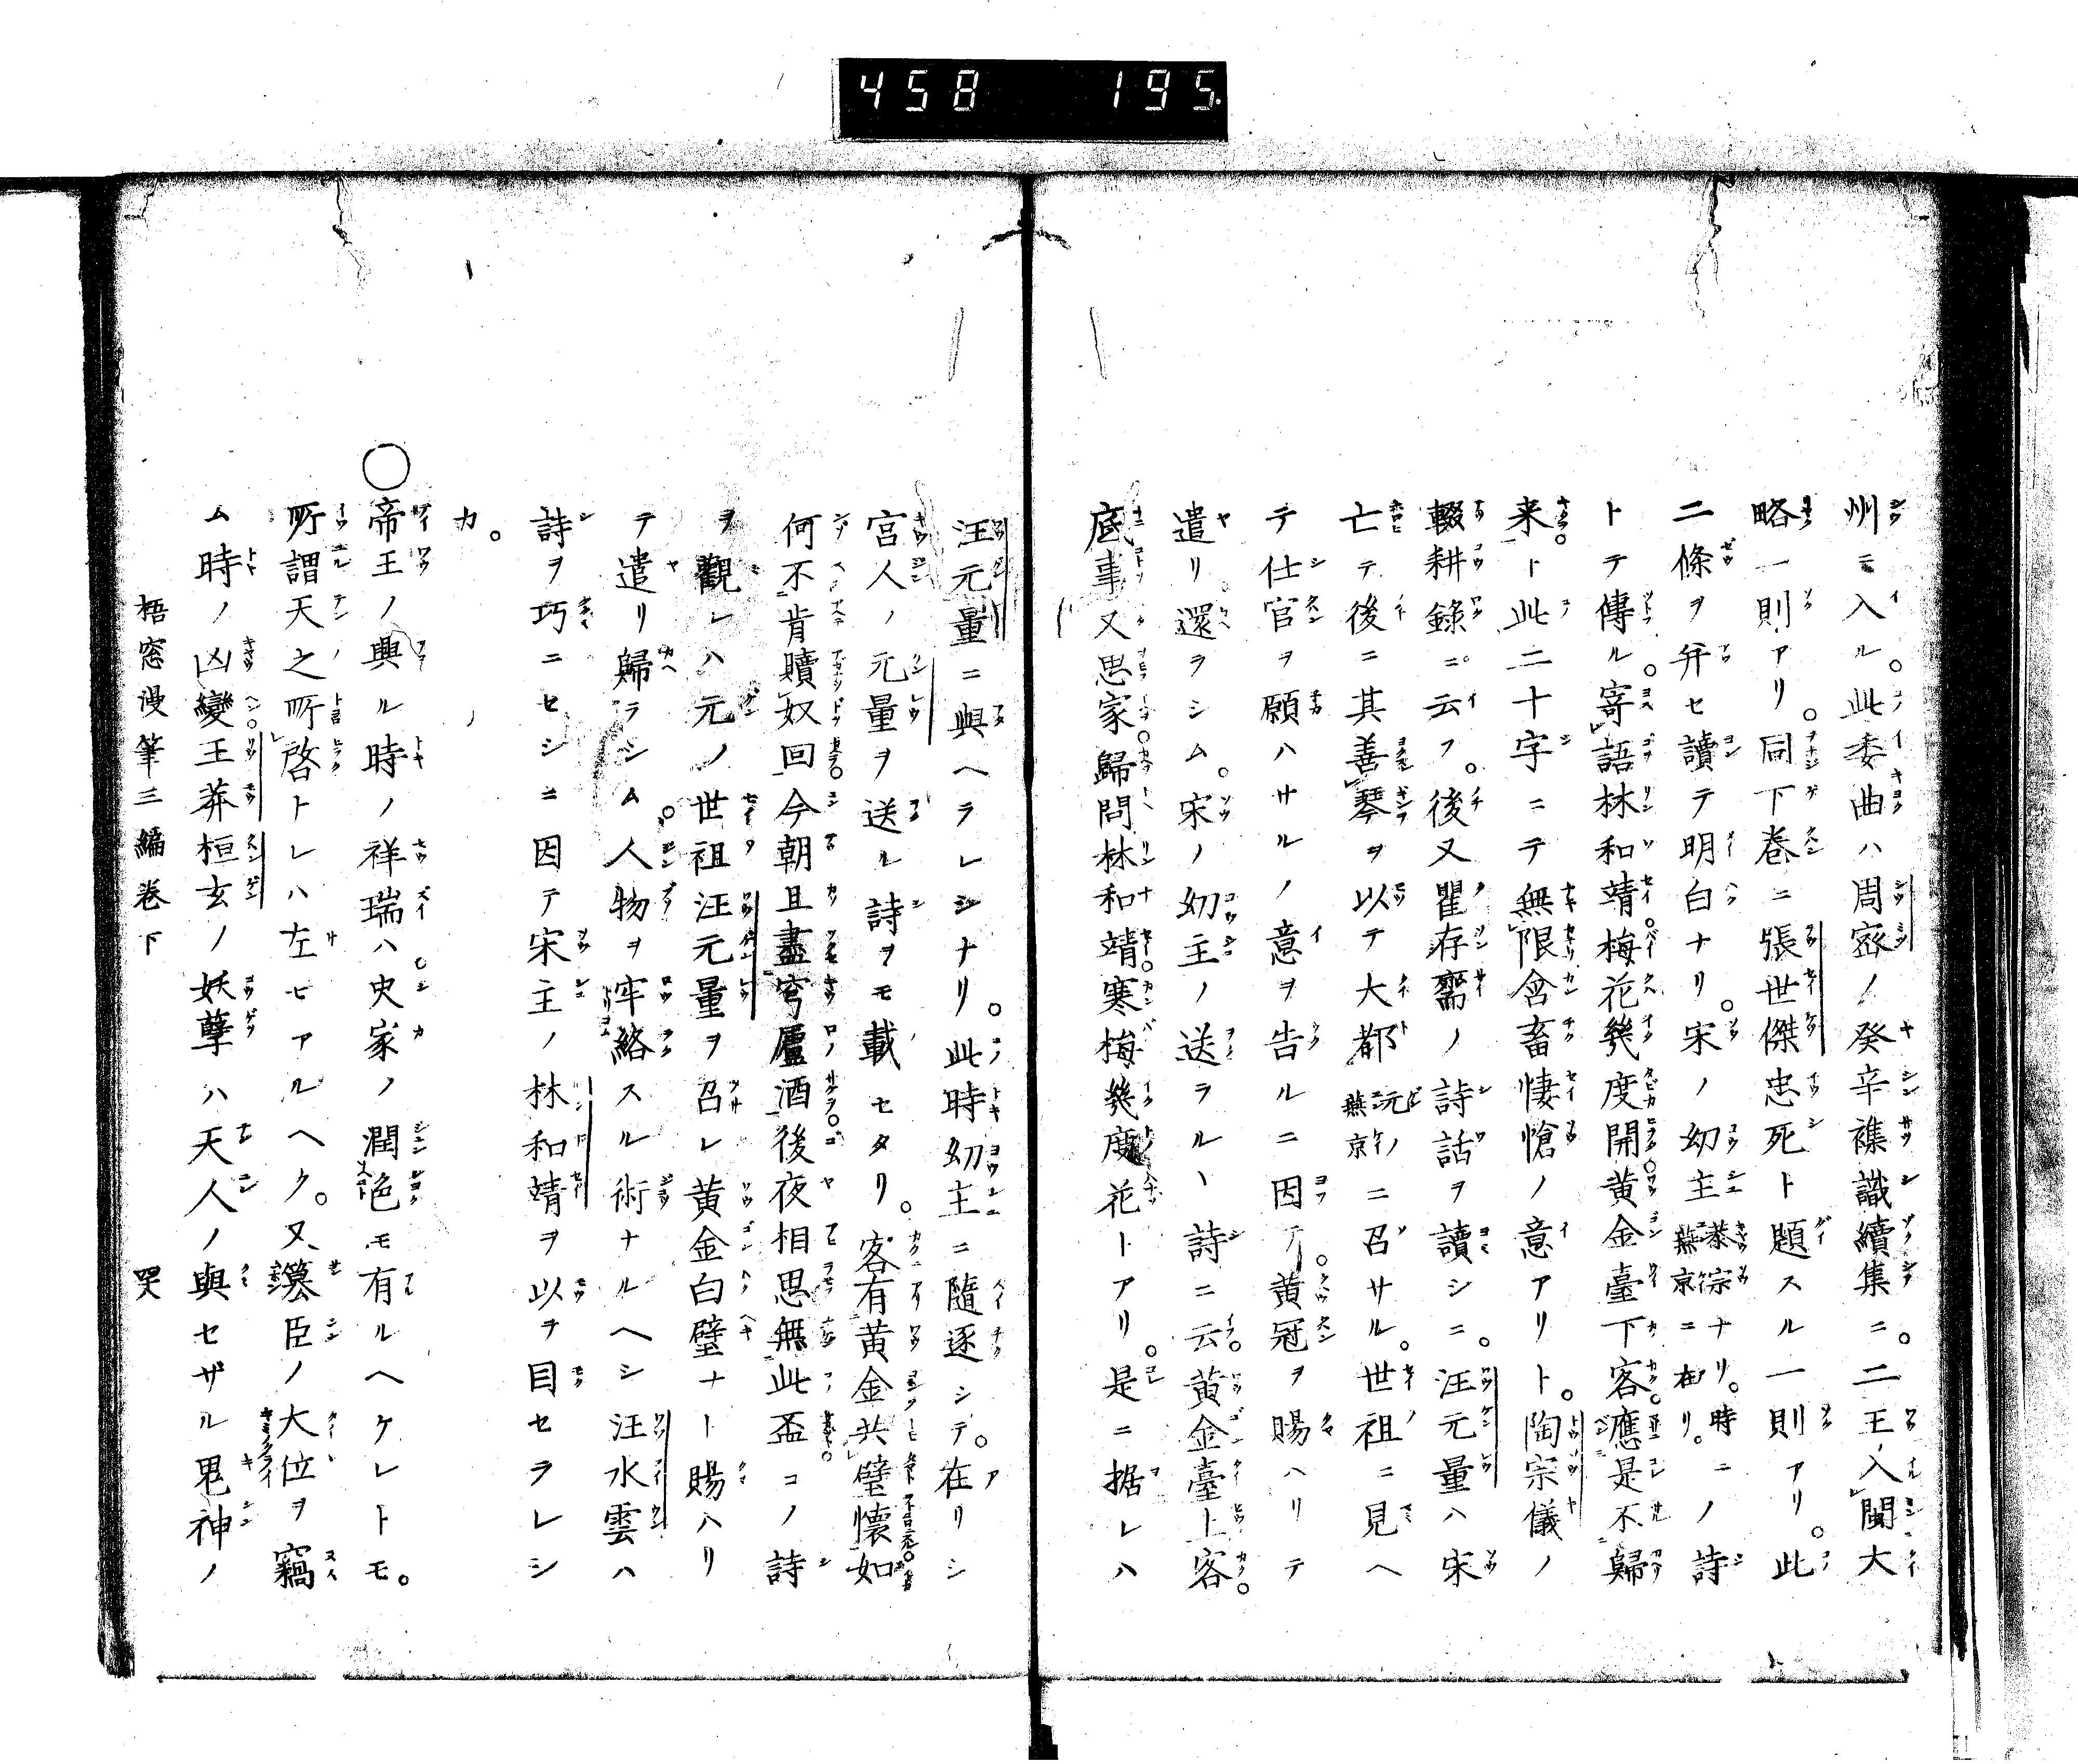 458 195.
州ニ入ル。此委曲ハ周密ノ癸辛襍識續集ニ。二王入閩大
略一則アリ。同下卷ニ張世傑忠死ト題スル一則アリ。此
二條ヲ并セ讀テ明白ナリ。宋ノ幼主恭宗ナリ。時ニ燕京ニ在リ。ノ詩
トテ傳ル。寄語林和靖梅花幾度開黄金臺下客。應是不歸
来。ト此二十字ニテ無限含畜悽愴ノ意アリト。陶宗儀ノ
輟耕錄ニ云フ。後又瞿存齋ノ詩話ヲ讀シニ。汪元量ハ宋
亡テ後ニ其善琴ヲ以テ大都元ノ燕京ニ召サル。世祖ニ見ヘ
テ仕官ヲ願ハサルノ意ヲ告ルニ因テ。黄冠ヲ賜ハリテ
遣リ還ラシム。宋ノ幼主ノ送ラルヽ詩ニ云。黄金臺上客。
底事又思家歸問林和靖寒梅幾度花トアリ。是ニ據レハ
汪元量ニ與ヘラレシナリ。此時幼主ニ隨逐シテ。在リシ
宮人ノ元量ヲ送ル詩ヲモ載セタリ。客有黄金共璧懷如
何不肯贖奴回今朝且盡穹廬酒後夜相思無此盃コノ詩
ヲ觀レハ元ノ世祖汪元量ヲ召レ黄金白璧ナト賜ハリ
テ遣リ歸ラシム。人物ヲ牢絡スル術ナルヘシ汪水雲ハ
詩ヲ巧ニセシニ因テ宋主ノ林和靖ヲ以ヲ目セラレシ
カ。
○帝王ノ興ル時ノ祥瑞ハ史家ノ潤色モ有ルヘケレトモ。
所謂天之所啓トレハ左モアルヘク。又簒臣ノ大位ヲ竊
ム時ノ凶變王莽桓玄ノ妖孽ハ天人ノ與セザル鬼神ノ
梧窓漫筆三編卷下 哭